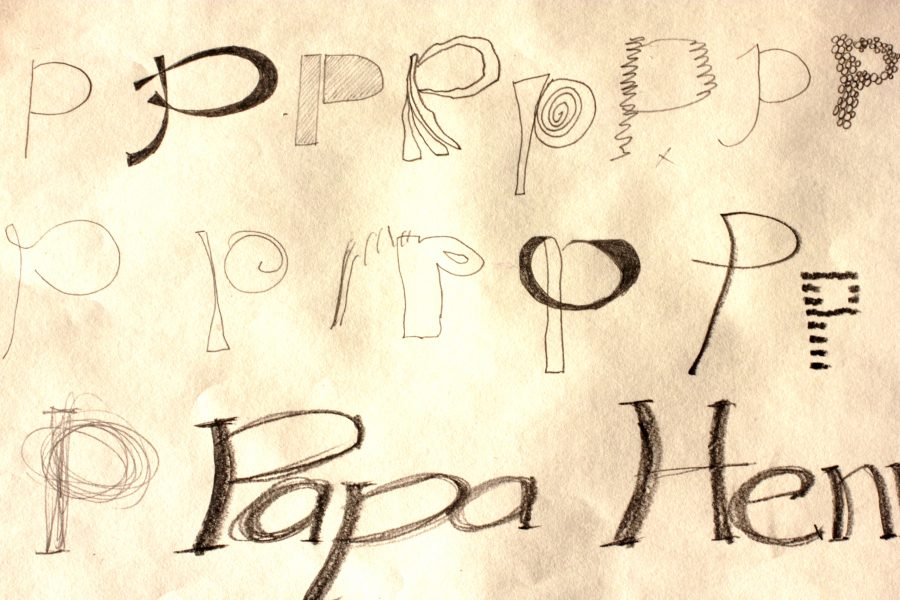 P P P R P P P P
P P P P P P
P Papa Hen